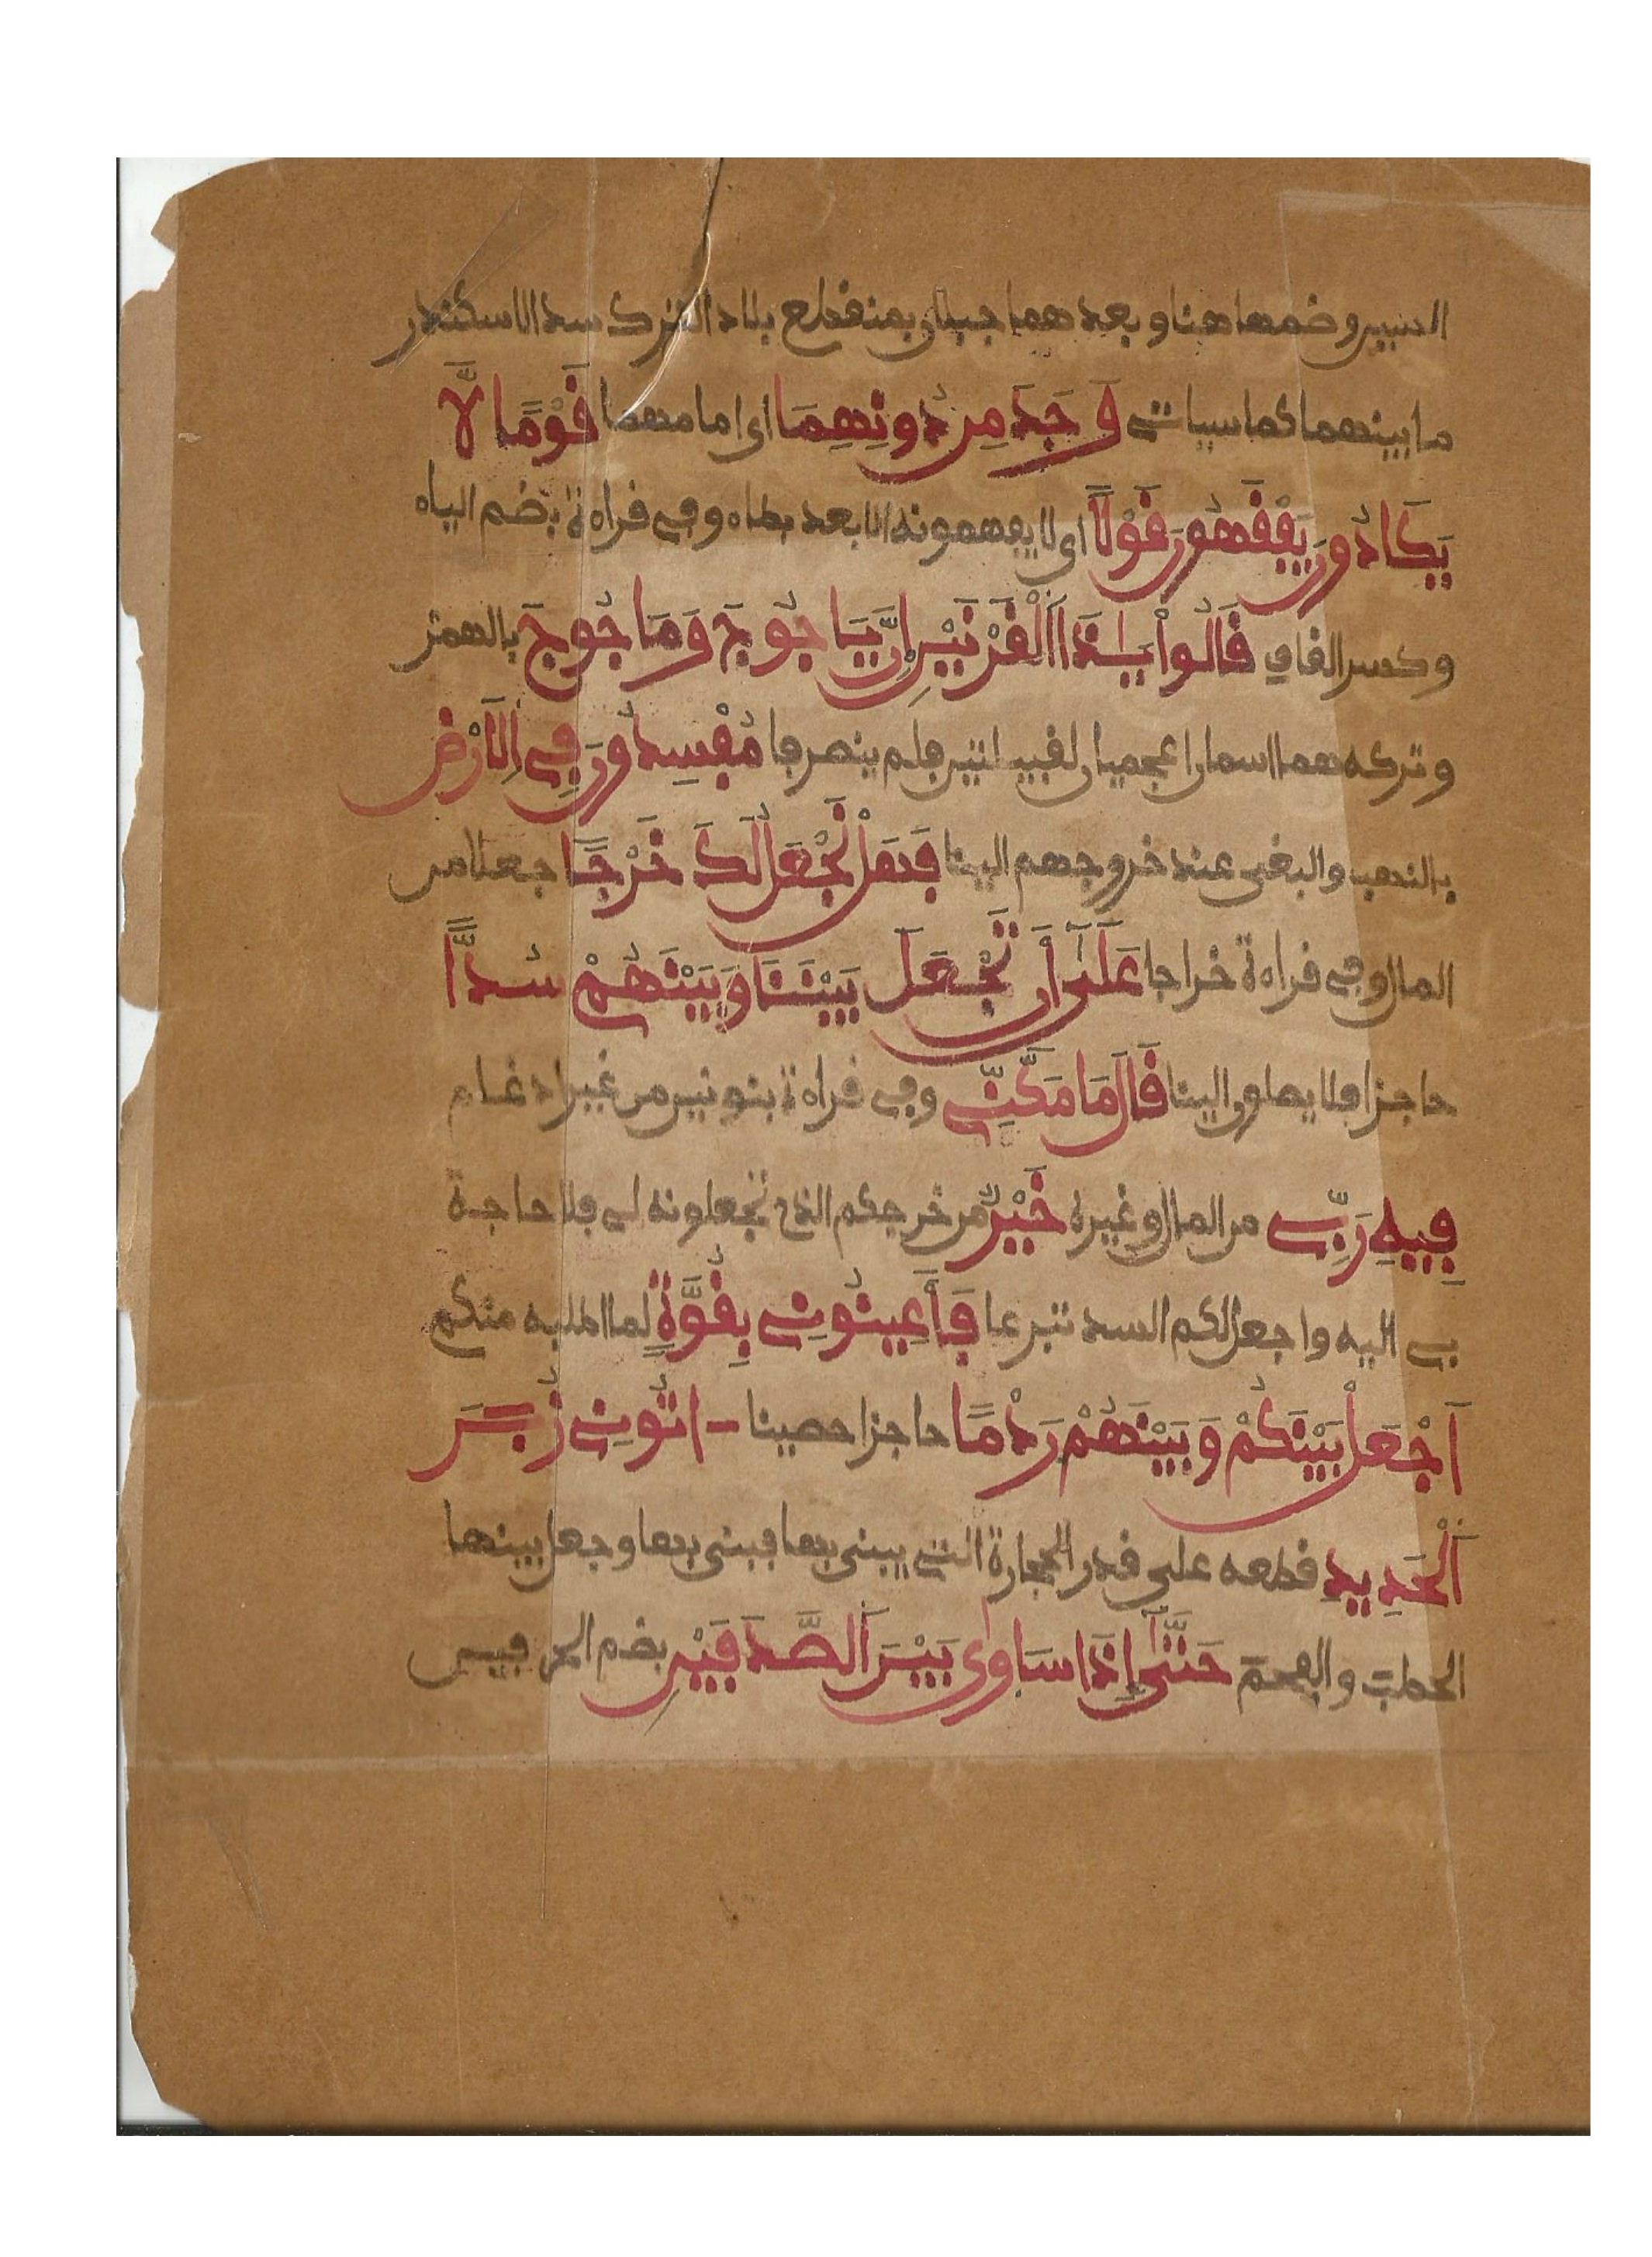 السين وضمها هنا وبعد هما جبلان بمنقطع بلاد الترك سد الاسكندر
ما بينهما كما سياتي وَجَدَ مِن دُونِهِمَا اي امامهما قَوْمًا لَّا
يَكَادُونَ يَفْقَهُونَ قَوْلًا اي لا يفهمونه الا بعد بطاه وفي قراءة بضم الياء
وكسر القاف قَالُواْ يَٰذَا اَ۬لْقَرْنَيْنِ إِنَّ يَاجُوجَ وَمَاجُوجَ بالهمز
وتركه هما اسمان اعجميان لقبيلتين فلم ينصرفا مُفْسِدُونَ فِي اِ۬لَارْضِ
بالنهب والبغي عند خروجهم الينا فَهَلْ نَجْعَلُ لَكَ خَرْجًا جعلا من
المال وفي قراءة خراجا عَلَىٰ أَن تَجْعَلَ بَيْنَنَا وَبَيْنَهُمْ سُدًّا
حاجزا فلا يصلون الينا قَالَ مَا مَكَّنِّي وفي قراءة بنونين من غير ادغام
فِيهِ رَبِّي من المال وغيره خَيْرٌ من خرجكم الذي تجعلونه لي فلا حاجة
بي اليه واجعل لكم السد تبرعا فَأَعِينُونِي بِقُوَّةٍ لما اطلبه منكم
أَجْعَلْ بَيْنَكُمْ وَبَيْنَهُمْ رَدْمًا حاجزا حصينا اتُونِي زُبَرَ
اَ۬لْحَدِيدِ قطعه على قدر الحجارة التي يبنى بها فبنى بها وجعل بينها
الحطب والفحم حَتَّىٰ إِذَا سَاوَىٰ بَيْنَ اَ۬لصَّدَفَيْنِ بضم الحرفين